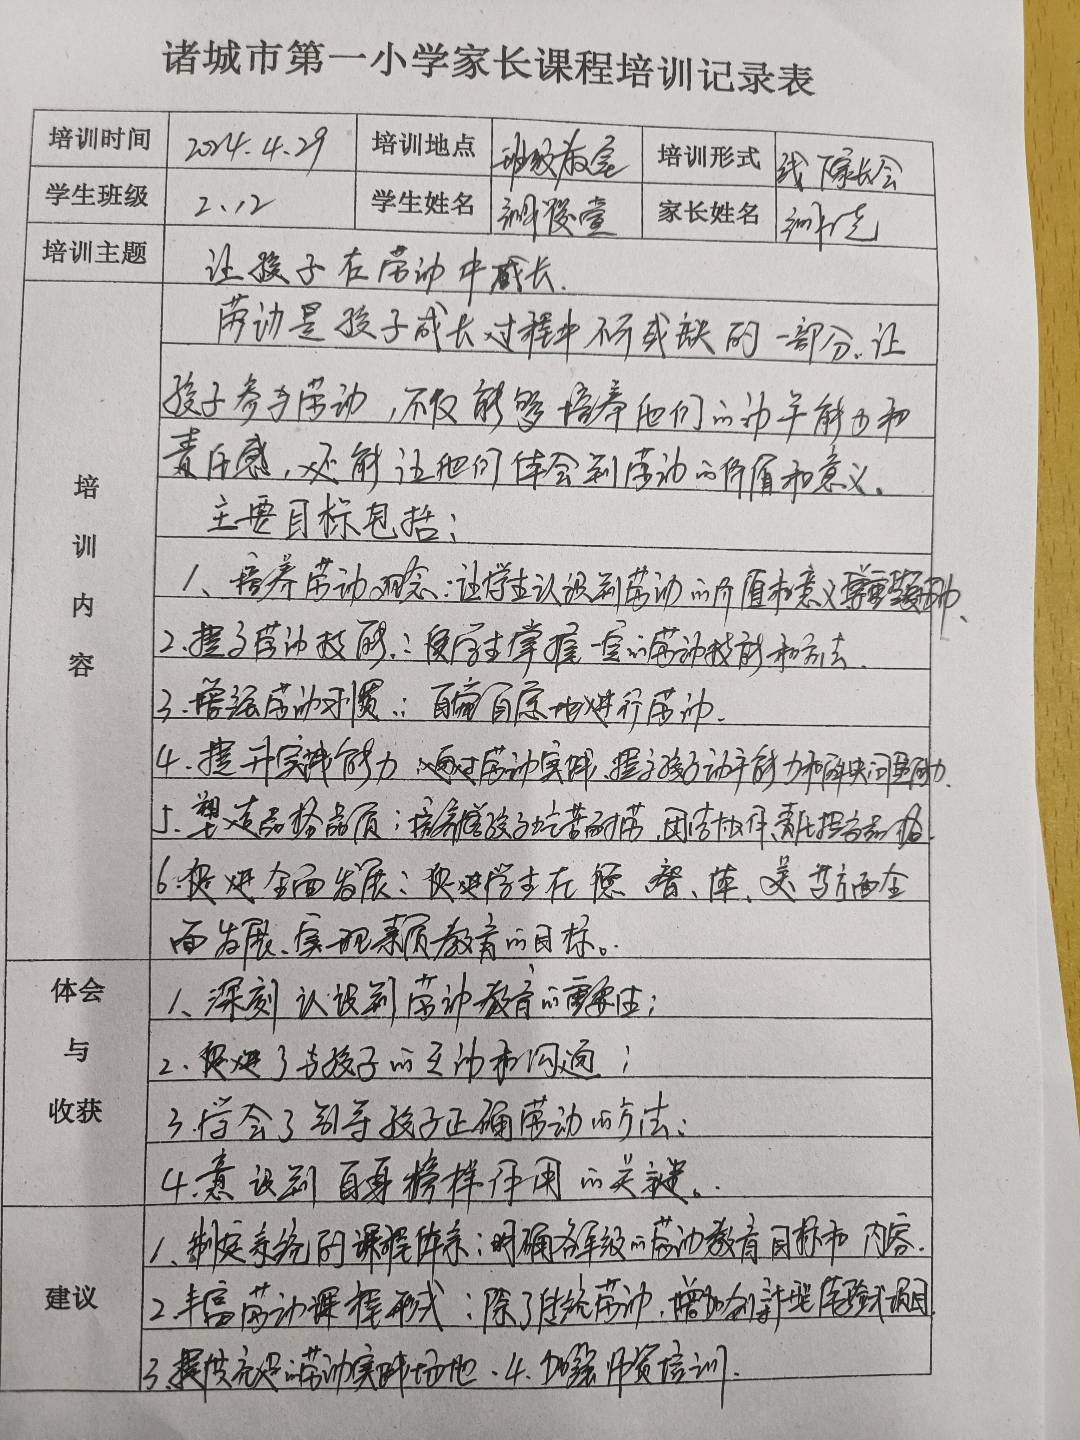 诸城市第一小学家长课程培训记录表
培训时间 2024.4.29 培训地点 班级教室 培训形式 线下家长会
学生班级 2.12 学生姓名 家长姓名
培训主题 让孩子在劳动中成长.
培训内容
劳动是孩子成长过程中不可或缺的一部分.让
孩子参与劳动,不仅能够培养他们的动手能力和
责任感,还能让他们体会到劳动的价值和意义。
主要目标包括:
1、培养劳动观念:让学生认识到劳动的价值和意义
2.提高劳动技能:使学生掌握一定的劳动技能和方法.
3.劳动习惯:自觉自愿地进行劳动.
4.提升实践能力 通过劳动实践、提高孩子动手能力和解决问题能力.
5.塑造品格品质:培养孩子吃苦耐劳,团结协作,责任担当品格.
6.促进全面发展:促进学生在德、智、体、美劳方面全
面发展、实现素质教育的目标。
体会与收获
1、深刻认识到劳动教育的重要性;
2.促进了与孩子的互动和沟通;
3.学会了引导孩子正确劳动的方法;
4.意识到自身榜样作用的关键。
建议
1、制定系统的课程体系:明确各年级的劳动教育目标和内容.
2.丰富劳动课程形式:除了传统劳动,增加创新型体验式项目.
3.提供充足的劳动实践场地.4.加强师资培训.